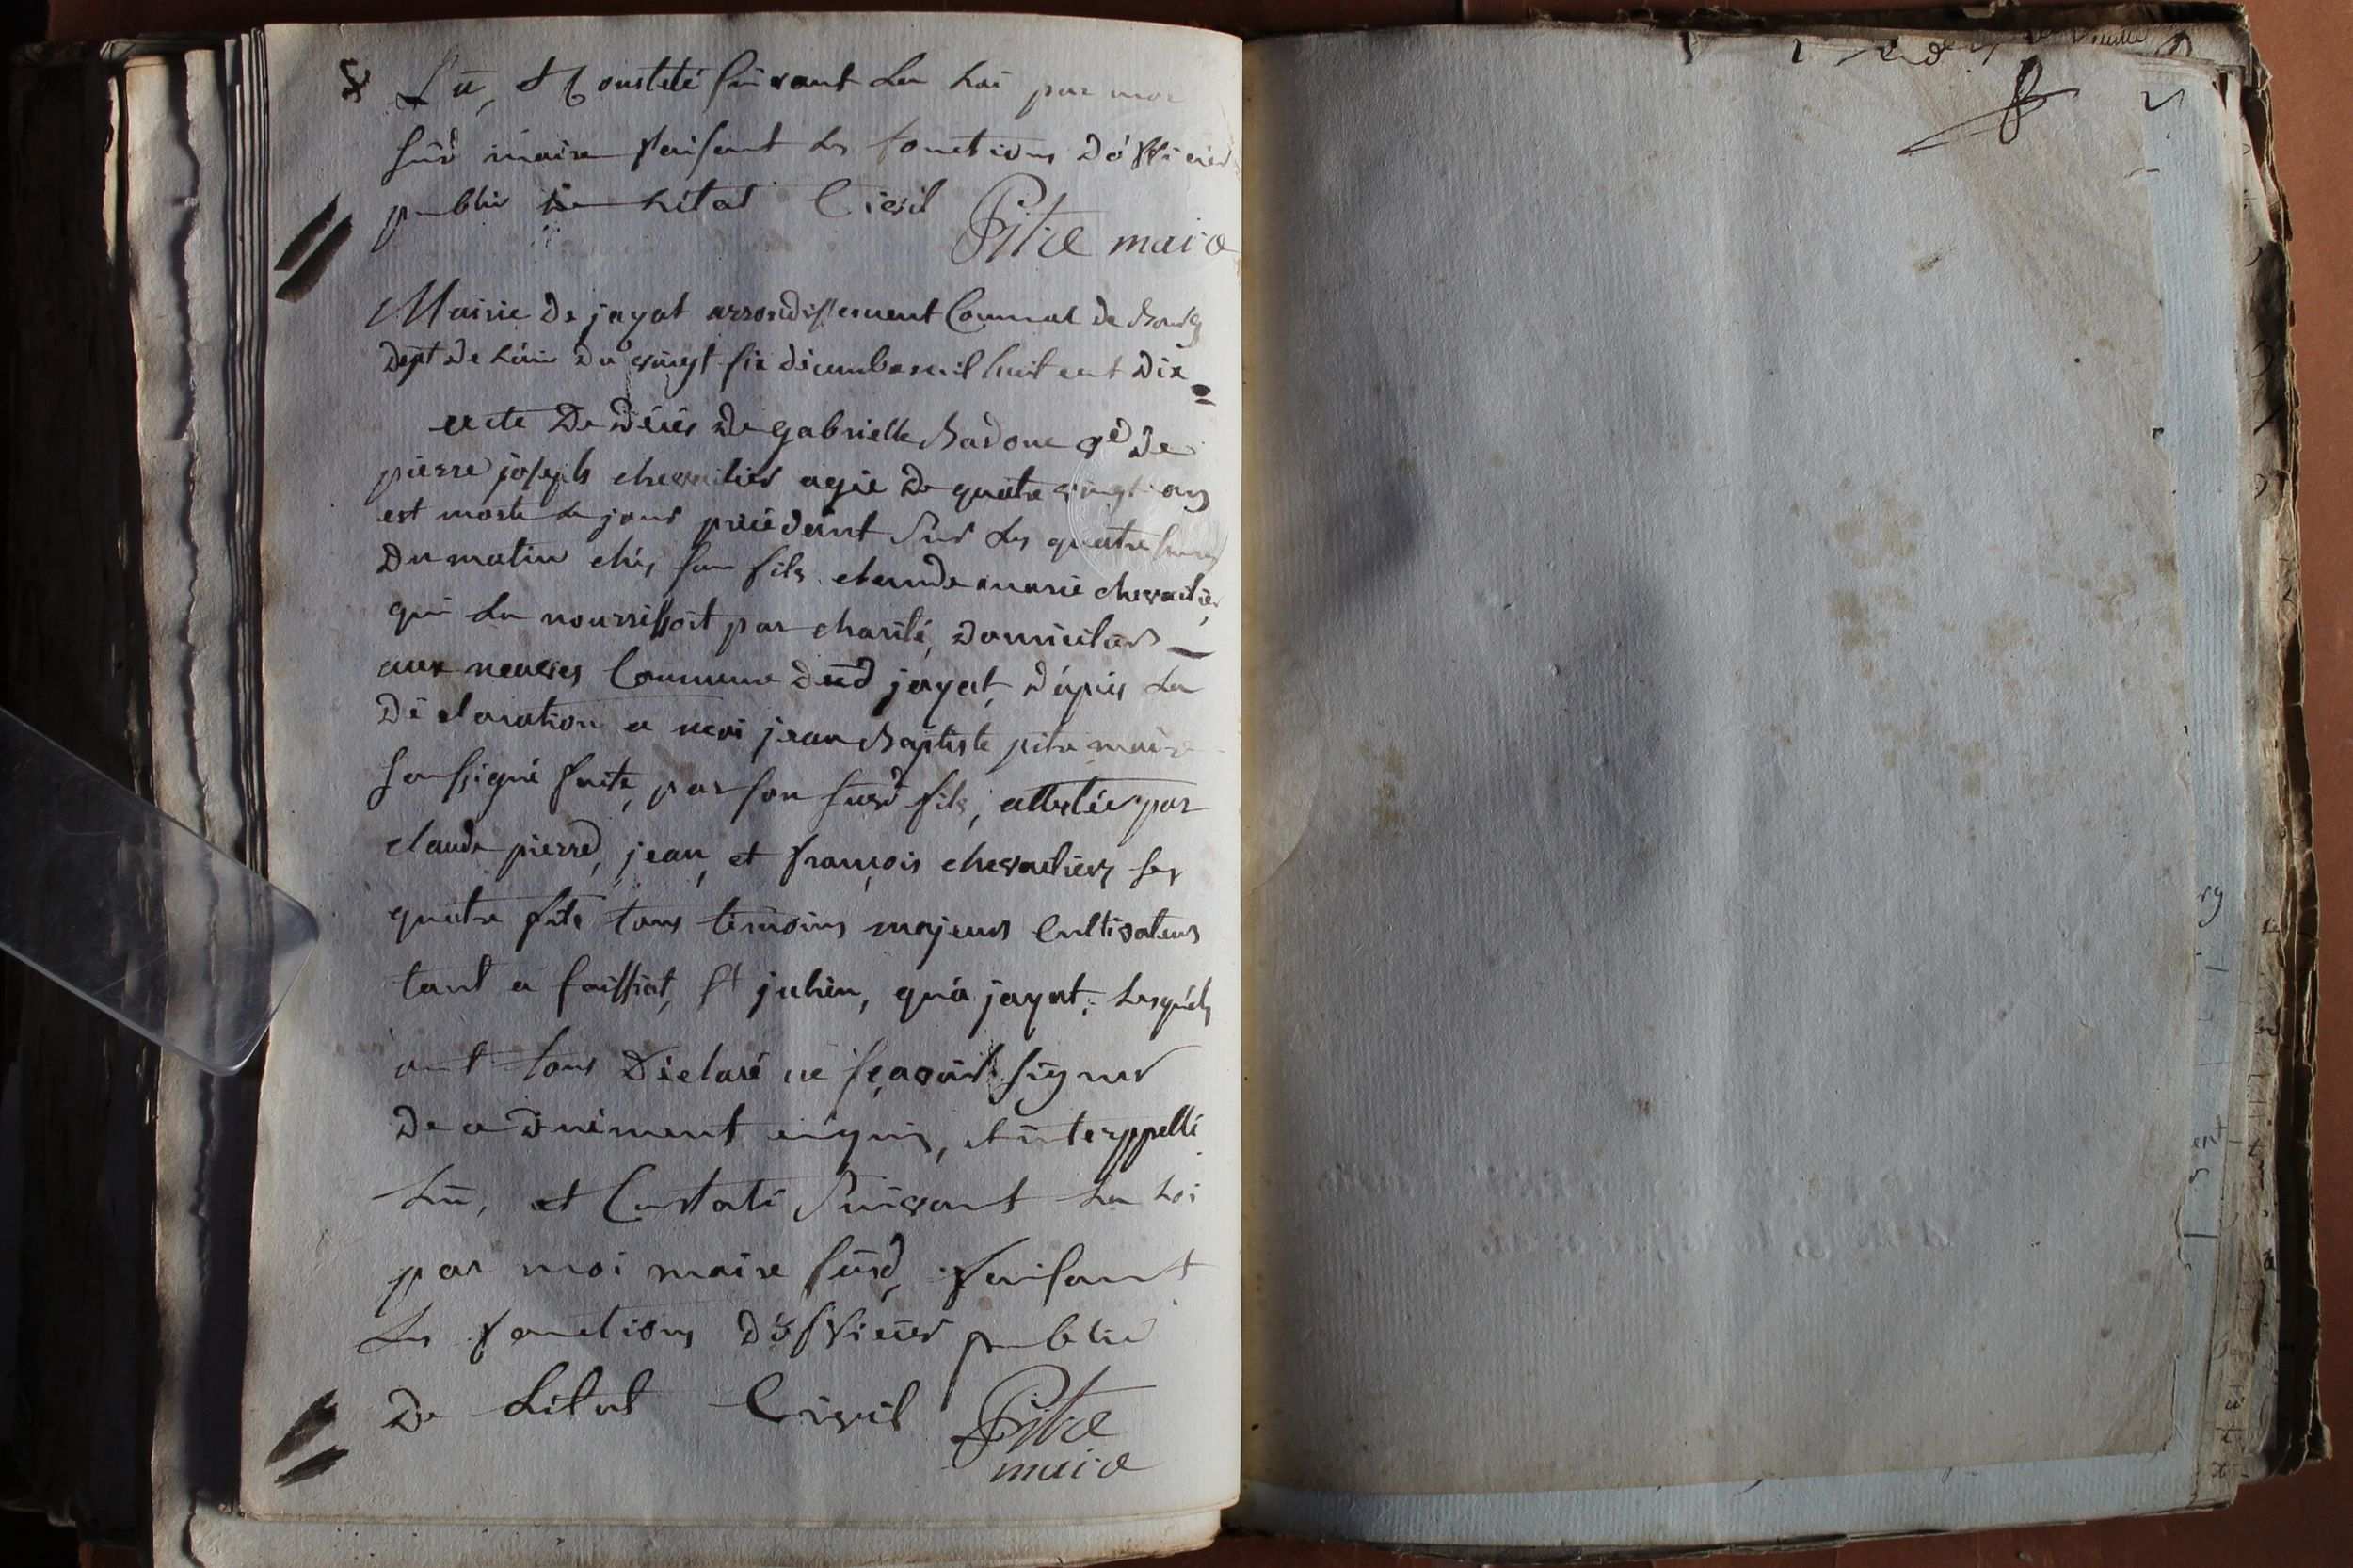 Lu, et Constaté suivant la Loi par moi
susd maire faisant les fonctions d'officier
public de l'état Civil Pitre maire
Mairie de jayat arrondissement Communal de Bourg
dépt de l'ain du vingt six décembre mil huit cent dix
acte de décès de gabrielle Badoue ve de
pierre joseph chevailier agée de quatre vingt ans
est morte le jour précédant sur les quatre heures
du matin chés son fils claude marie chevailier,
qui la nourrissoit par charité, domicilier
aux Commune dud jayat, d'après la
Déclaration a moi jean Baptiste pitre maire
soussigné faite, par son susd fils, attestée par
claude pierre, jean, et françois chevailiers ses
quatre fils tous témoins majeurs Cultivateurs
tant a foissiat, st julien, qu'a jayat; lesquels
ont tous Déclaré ne sçavoir signer
de ce duement enquis, et interppellé
Lu, et Constaté suivant la Loi
par moi maire susd, faisant
les fonctions d'officier public
de L'état Civil Pitre
maire